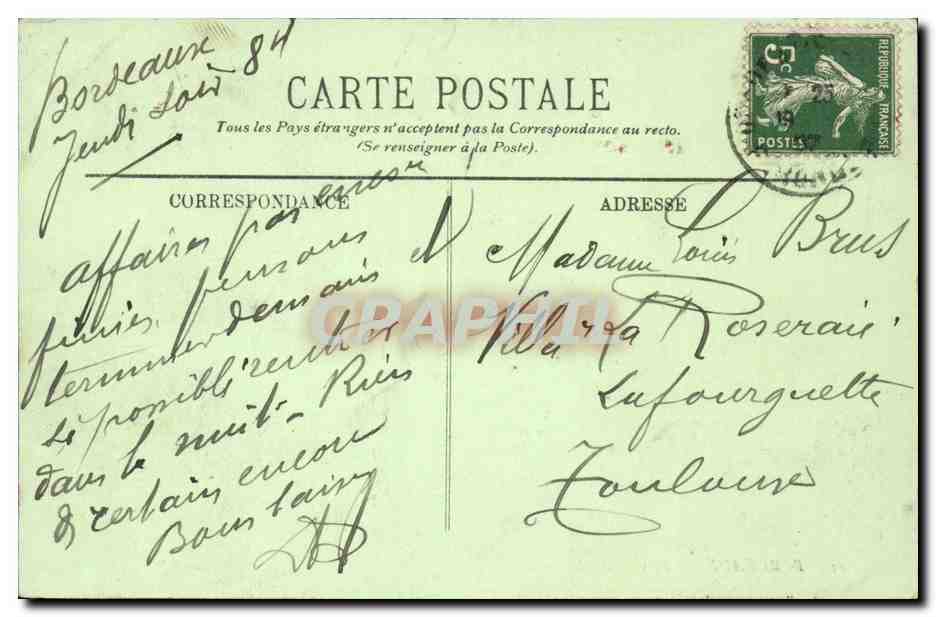 Bordeaux
Jeudi soir 8h
CARTE POSTALE
Tous les Pays étrangers n'acceptent pas la Correspondance au recto.
(Se renseigner à la Poste).
CORRESPONDANCE
affaires pas encore
finies, pensons
terminer demain et
si possible rentrer
dans la nuit. Rien
de certain encore
Bons baisers
ADRESSE
Madame Louis Brus
Villa La Roseraie
Lafourguette
Toulouse
REPUBLIQUE FRANÇAISE
5c
POSTES
CPAPHIL